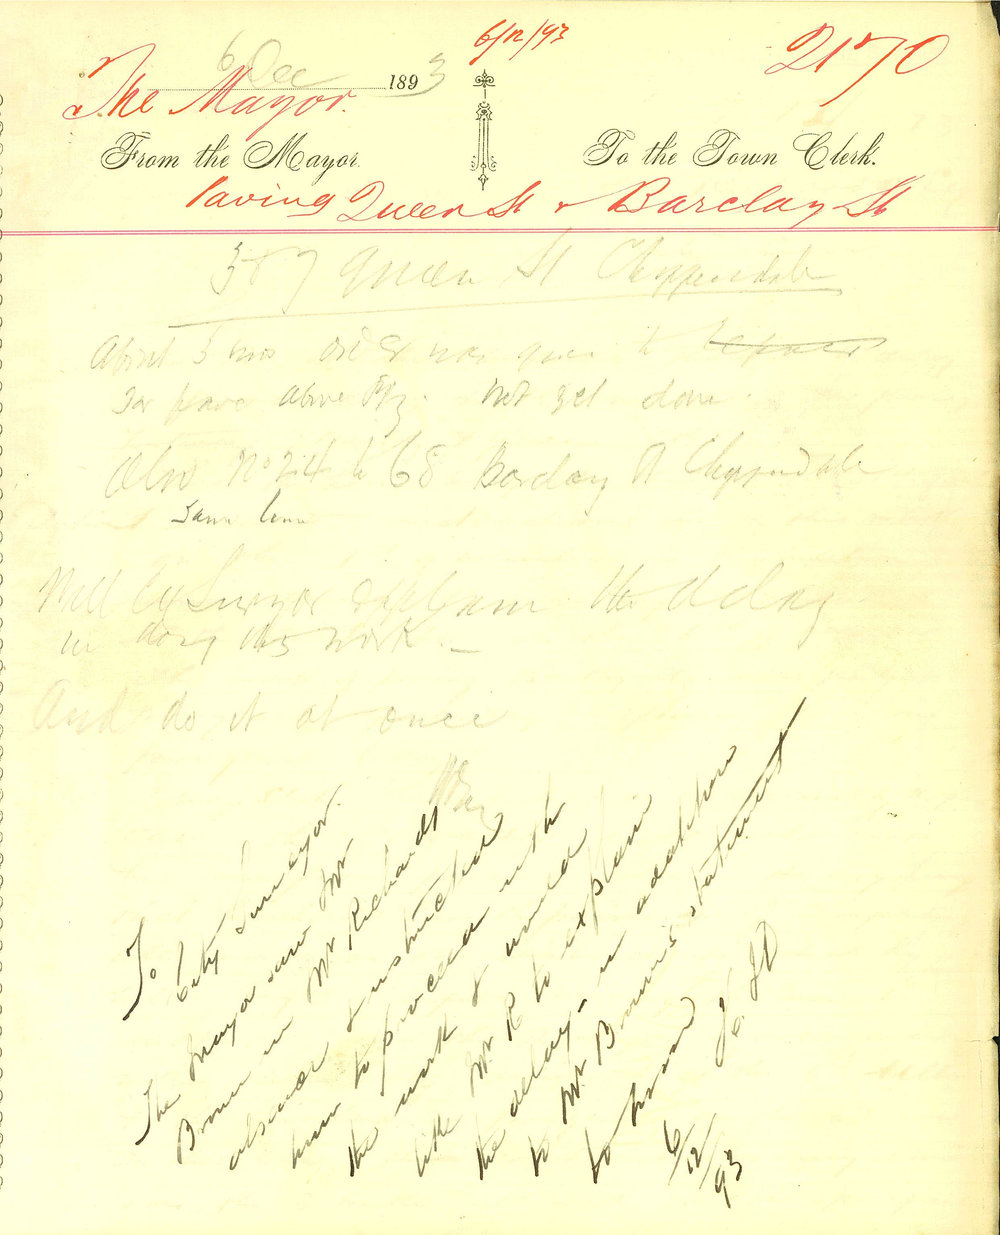 6/12/93
2170
6 Dec 1893
The Mayor.
From the Mayor.
To the Town Clerk.
Paving Queen St & Barclay St
587 Queen St Chippendale
About 5 mos order was given to repair
Tar pave above Ftpg. Not yet done.
Also No 24 to 68 Barclay St Chippendale
Same time
Will Cy Surveyor explain the delay
in doing this work.
And do it at once
To City Surveyor.
The Mayor saw Mr
Brown in Mr Richards
absence & instructed
him to proceed with
the work & would
like Mr. R to explain
the delay - in addition
to Mr Brown's statement
to him
6/12/93